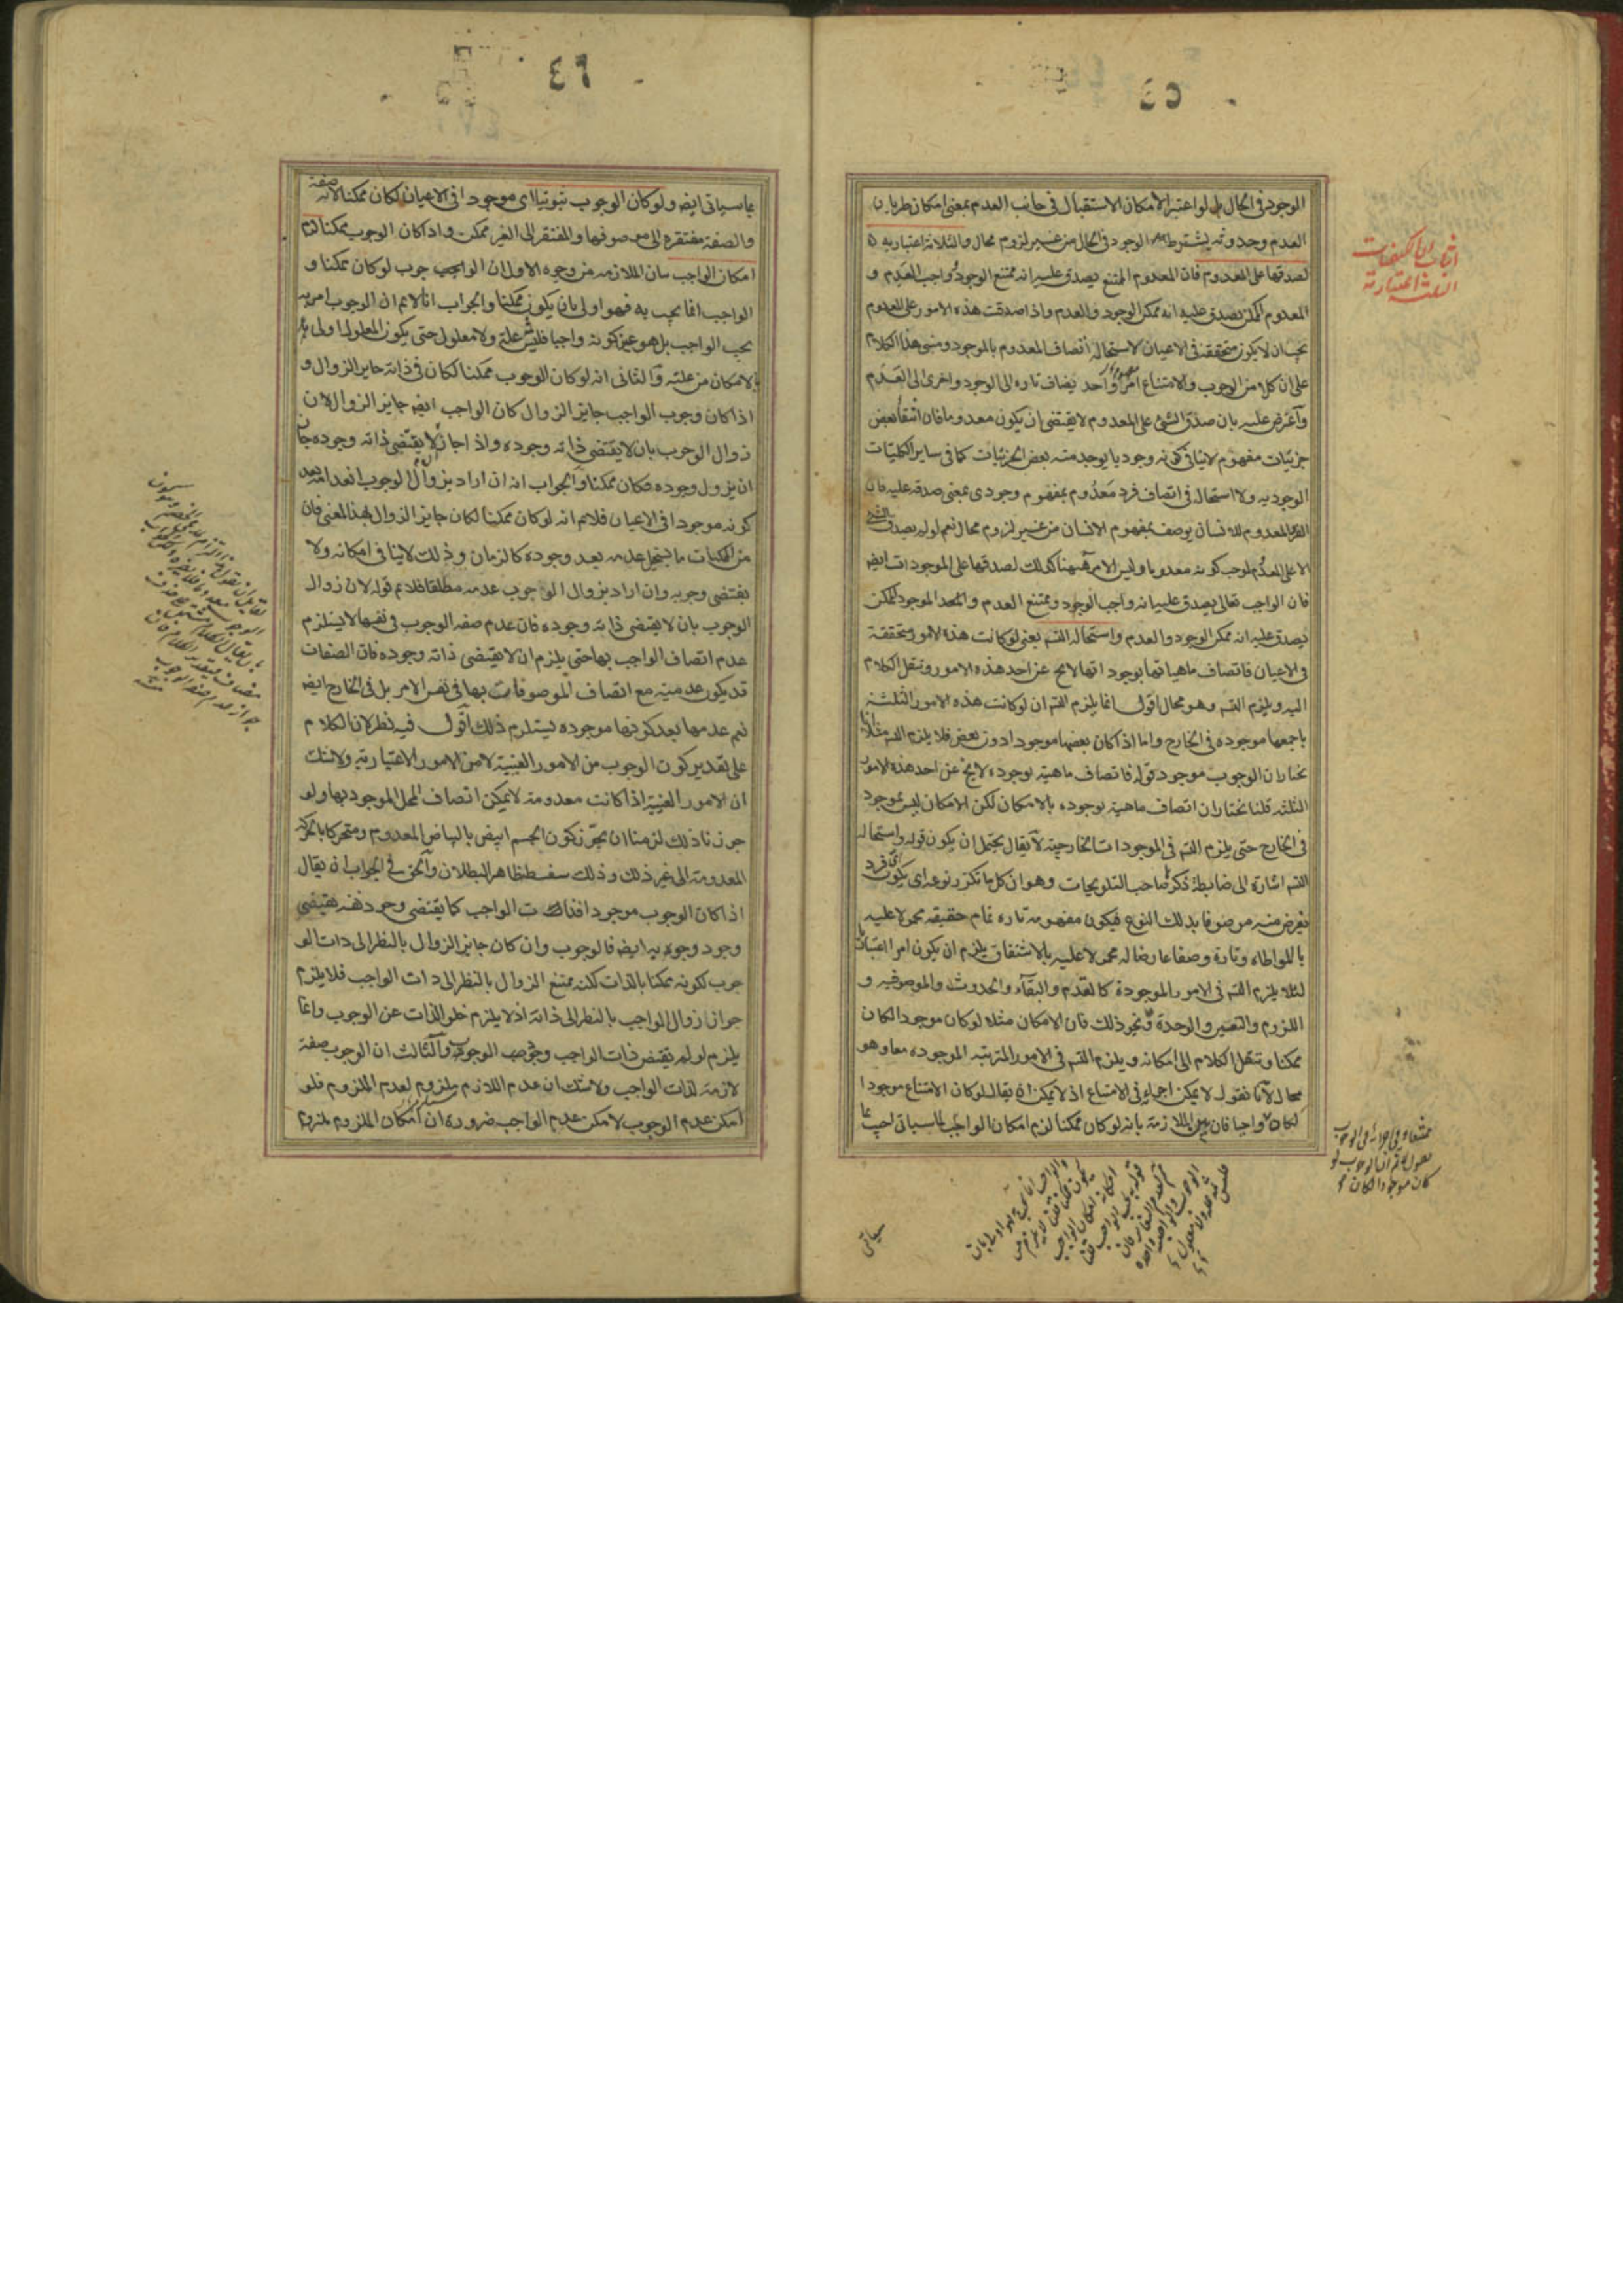 ٤٥
الوجود في الحال بل لو اعتبر الامكان الاستقبال في جانب العدم بمعنى امكان طريان
العدم وحدوثه يشترط الوجود في الحال من غير لزوم محال والثلاثة اعتبارية
لصدقها على المعدوم فان المعدوم الممتنع يصدق عليه انه ممتنع الوجود واجب العدم و
المعدوم الممكن يصدق عليه انه ممكن الوجود والعدم واذا صدقت هذه الامور على المعدوم
يجب ان لا يكون متحققة في الاعيان لاستحالة اتصاف المعدوم بالموجود ومبنى هذا الكلام
على ان كلا من الوجوب والامتناع امر واحد يضاف تارة الى الوجود واخرى الى العدم
واعترض عليه بان صدق الشئ على المعدوم لا يقتضي ان يكون معدوما فان انتفا بعض
جزئيات مفهوم لا ينافي كونه وجوديا يوجد منه بعض الجزئيات كما في ساير الكليات
الوجودية ولا استحالة في اتصاف فرد معدوم بمفهوم وجودي بمعنى صدقه عليه فان
الفرد المعدوم للانسان يوصف بمفهوم الانسان من غير لزوم محال نعم لو لم يصدق الشئ
الا على المعدوم لوجب كونه معدوما وليس الامر ههنا كذلك لصدقها على الموجودات ايضا
فان الواجب تعالى يصدق عليه انه واجب الوجود وممتنع العدم والموجود الممكن
يصدق عليه انه ممكن الوجود والعدم واستحالة التس يعني لو كانت هذه الامور متحققة
في الاعيان فاتصاف ماهياتها بوجوداتها لا يخ عن احد هذه الامور وننقل الكلام
اليه ويلزم التس وهو محال اقول انما يلزم التس ان لو كانت هذه الامور الثلثة
باجمعها موجودة في الخارج واما اذا كان بعضها موجودا دون بعض فلا يلزم التس مثلا
نختار ان الوجوب موجود قوله فاتصاف ماهيته بوجوده لا يخ عن احد هذه الامور
الثلثة قلنا نختار ان اتصاف ماهيته بوجوده بالامكان لكن الامكان ليس بموجود
في الخارج حتى يلزم التس في الموجودات الخارجية لا يقال يحتمل ان يكون قوله واستحالة
التس اشارة الى ضابطة ذكرها صاحب التلويحات وهو ان كل ما تكرر نوعه اي يكون اي فرد
يفرض منه موصوفا بذلك النوع فيكون مفهومه تارة تمام حقيقته محمولا عليه
بالمواطاه وتارة وصفا عارضا له محمولا عليه بالاشتقاق يلزم ان يكون امرا اعتباريا
لئلا يلزم التس في الامور الموجودة كالقدم والبقاء والحدوث والموصوفية و
اللزوم والتعين والوحدة ونحو ذلك فان الامكان مثلا لو كان موجودا لكان
ممكنا وننقل الكلام الى امكانه ويلزم التس في الامور المترتبة الموجودة معا وهو
محال لانا نقول لا يمكن اجراؤه في الامتناع اذ لا يمكن ان يقال لو كان الامتناع موجودا
لكان واجبا فان بين الملازمة بانه لو كان ممكنا لزم امكان الواجب لما سياتي اجيب بما
اثبات ان الكيفيات
الثلثة اعتبارية
سياتي
٤٦
بما سياتي ايضا ولو كان الوجوب ثبوتيا اي موجودا في الاعيان لكان ممكنا لانه صفة
والصفة مفتقرة الى موصوفها والمفتقر الى الغير ممكن واذا كان الوجوب ممكنا لزم
امكان الواجب بيان الملازمة من وجوه الاول ان الواجب لو كان ممكنا و
الواجب انما يجب به فهو اولى بان يكون ممكنا والجواب انا لانم ان الوجوب امر به
يجب الواجب بل هو عين كونه واجبا فليس ثم علة ولا معلول حتى يكون المعلول اولى
بالامكان من علته والثاني انه لو كان الوجوب ممكنا لكان في ذاته جايز الزوال و
اذا كان وجوب الواجب جايز الزوال كان الواجب ايضا جايز الزوال لان
زوال الوجوب بان لا يقتضي ذاته وجوده واذا جاز ان لا يقتضي ذاته وجوده جاز
ان يزول وجوده فكان ممكنا والجواب انه ان اراد بزوال الوجوب انعدامه بعد
كونه موجودا في الاعيان فلانم انه لو كان ممكنا لكان جايز الزوال بهذا المعنى فان
من الممكنات ما يستحيل عدمه بعد وجوده كالزمان وذلك لا ينافي امكانه ولا
يقتضي وجوبه وان اراد بزوال الوجوب عدمه مطلقا فلانم قوله لان زوال
الوجوب بان لا يقتضي ذاته وجوده فان عدم صفة الوجوب في نفسها لا يستلزم
عدم اتصاف الواجب بها حتى يلزم ان لا يقتضي ذاته وجوده فان الصفات
قد يكون عدمية مع اتصاف الموصوفات بها في نفس الامر بل في الخارج ايضا
نعم عدمها بعد كونها موجودة يستلزم ذلك اقول فيه نظر لان الكلام
على تقدير كون الوجوب من الامور العينية لا من الامور الاعتبارية ولا شك
ان الامور العينية اذا كانت معدومة لا يمكن اتصاف المحل الموجود بها ولو
جوزنا ذلك لزمنا ان نجوز كون الجسم ابيض بالبياض المعدوم ومتحركا بالحركة
المعدومة الى غير ذلك وذلك سفسطة ظاهر البطلان والحق في الجواب ان يقال
اذا كان الوجوب موجودا فذات الواجب كما يقتضي وجود نفسه يقتضي
وجود وجوبه ايضا فالوجوب وان كان جايز الزوال بالنظر الى ذات الو
جوب لكونه ممكنا بالذات لكنه ممتنع الزوال بالنظر الى ذات الواجب فلا يلزم
جواز زوال الواجب بالنظر الى ذاته اذ لا يلزم خلو الذات عن الوجوب وانما
يلزم لو لم يقتض ذات الواجب وجود الوجوب والثالث ان الوجوب صفة
لازمة لذات الواجب ولا شك ان عدم اللازم ملزوم لعدم الملزوم فلو
امكن عدم الوجوب لامكن عدم الواجب ضرورة ان امكان الملزوم ملزوم